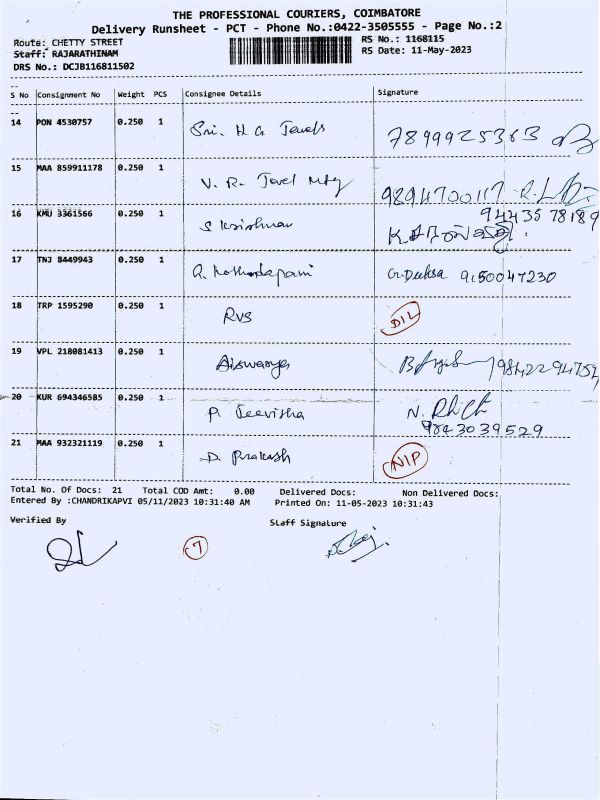 THE PROFESSIONAL COURIERS, COIMBATORE
Delivery Runsheet - PCT - Phone No.:0422-3505555 - Page No.:2
Route: CHETTY STREET RS No.: 1168115
Staff: RAJARATHINAM RS Date: 11-May-2023
DRS No.: DCJB116811502
S No Consignment No Weight PCS Consignee Details Signature
14 PON 4530757 0.250 1 Sri. H G Jewels 7899925363
15 MAA 859911178 0.250 1 V. R. Jewel Mfg 9894700117
16 KMU 3361566 0.250 1 S Krishnan 9443578189
17 TNJ 8449943 0.250 1 G.Duksa 9150047230
18 TRP 1595290 0.250 1 RVS DIL
19 VPL 218081413 0.250 1 Aiswarya 9842294754
20 KUR 694346585 0.250 1 P. Jeevitha N.
9843039529
21 MAA 932321119 0.250 1 D. Prakash NIP
Total No. Of Docs: 21 Total COD Amt: 0.00 Delivered Docs: Non Delivered Docs:
Entered By :CHANDRIKAPVI 05/11/2023 10:31:40 AM Printed On: 11-05-2023 10:31:43
Verified By Staff Signature
7